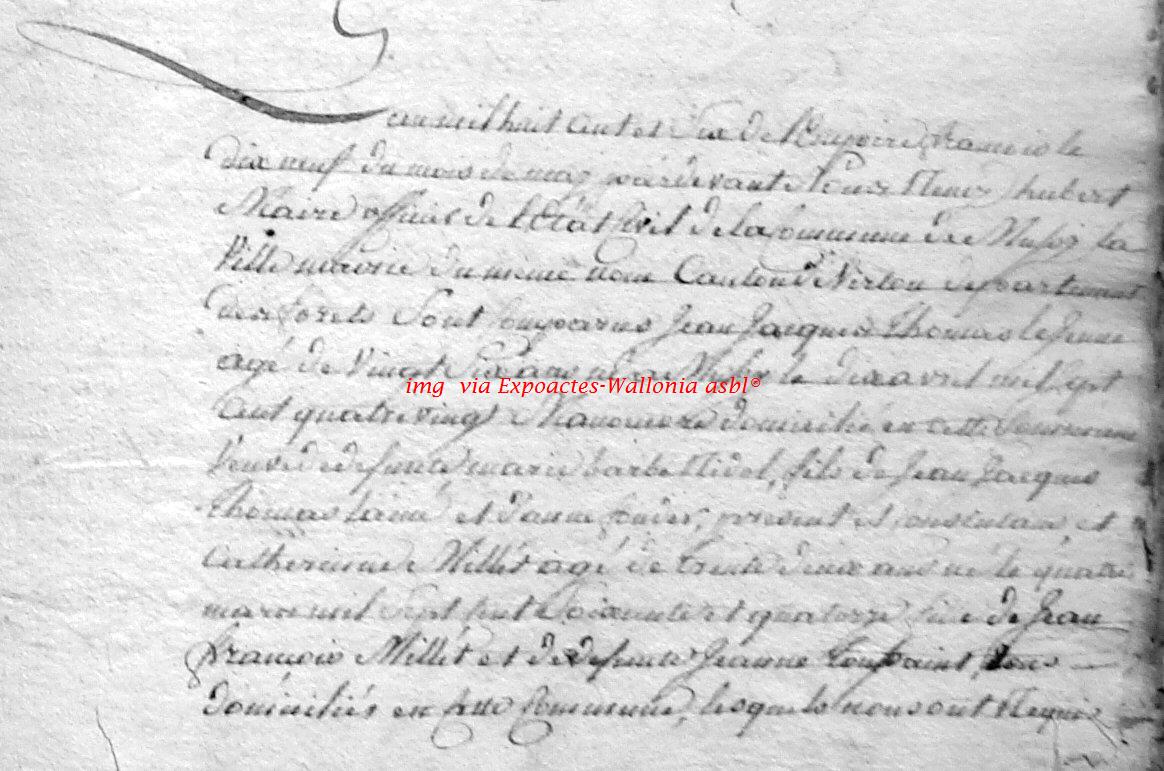 L'an mil huit cent et six de l'Empire francois le
dix neuf du mois de may pardevant Nous hubert
Maire officier de l'Etat Civil de la Commune de Mussy la
Ville mairie du même nom Canton de Virton departement
des forets Sont Comparus Jean Jacques Thomas le Jeune
agé de Vingt Six ans né a le dix avril mil sept
Cent quatre vingt Manoeuvre domicilié en cette Commune
Veuf de defunte marie barbe fils de Jean Jacques
Thomas lainé et d'anne present et Consentans et
Catherinne Millet agé de trente deux ans né le quatre
mars mil Sept Cent Soixante et quatorze fille de Jean
francois Millet et de defunte Jeanne Toussaint, tous
domiciliés en cette Commune, lesquels nous ont Requis
img via Expoactes-Wallonia asbl®